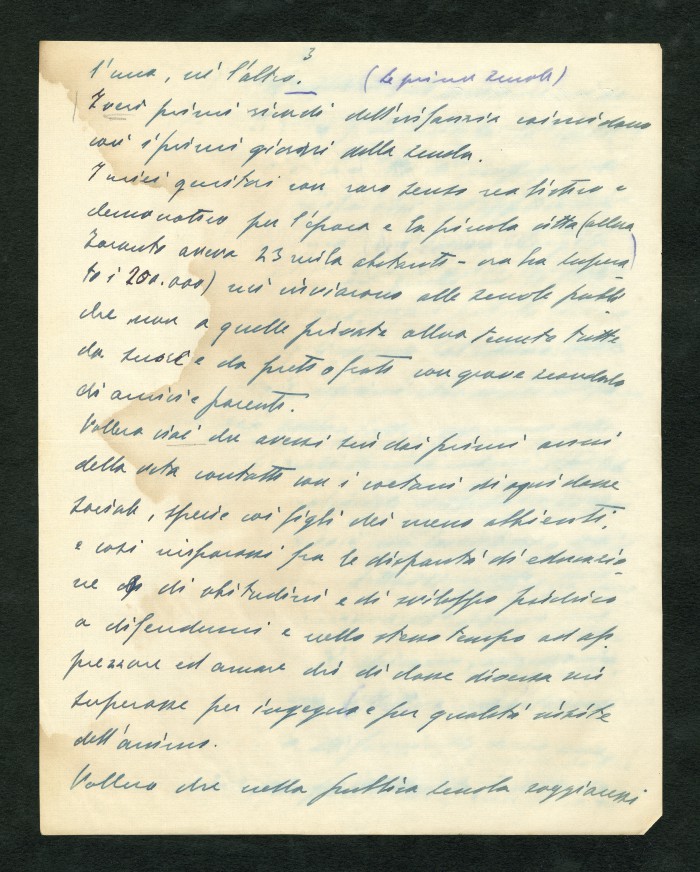 3
l'una, né l'altro. (le prime scuole)
I veri primi ricordi dell'infanzia coincidono
con i primi giorni della scuola.
I miei genitori con raro senso realistico e
democratico per l'epoca e la piccola città (allora
Taranto aveva 23 mila abitanti - ora ha supera
to i 200.000) mi inviarono alle scuole pubbli
che non a quelle private allora tenute tutte
da suore e da preti o frati con grave scandalo
di amici e parenti.
Vollero cioè che avessi sin dai primi anni
della vita contatti con i coetanei di ogni classe
sociale, specie coi figli dei meno abbienti,
e così imparassi fra le disparità di educazio-
ne di abitudini e di sviluppo psichico
a difendermi e nello stesso tempo ad ap
prezzare ed amare chi di classe diversa mi
superasse per ingegno e per qualità insite
dell'animo.
Vollero che nella pubblica scuola soggiacessi